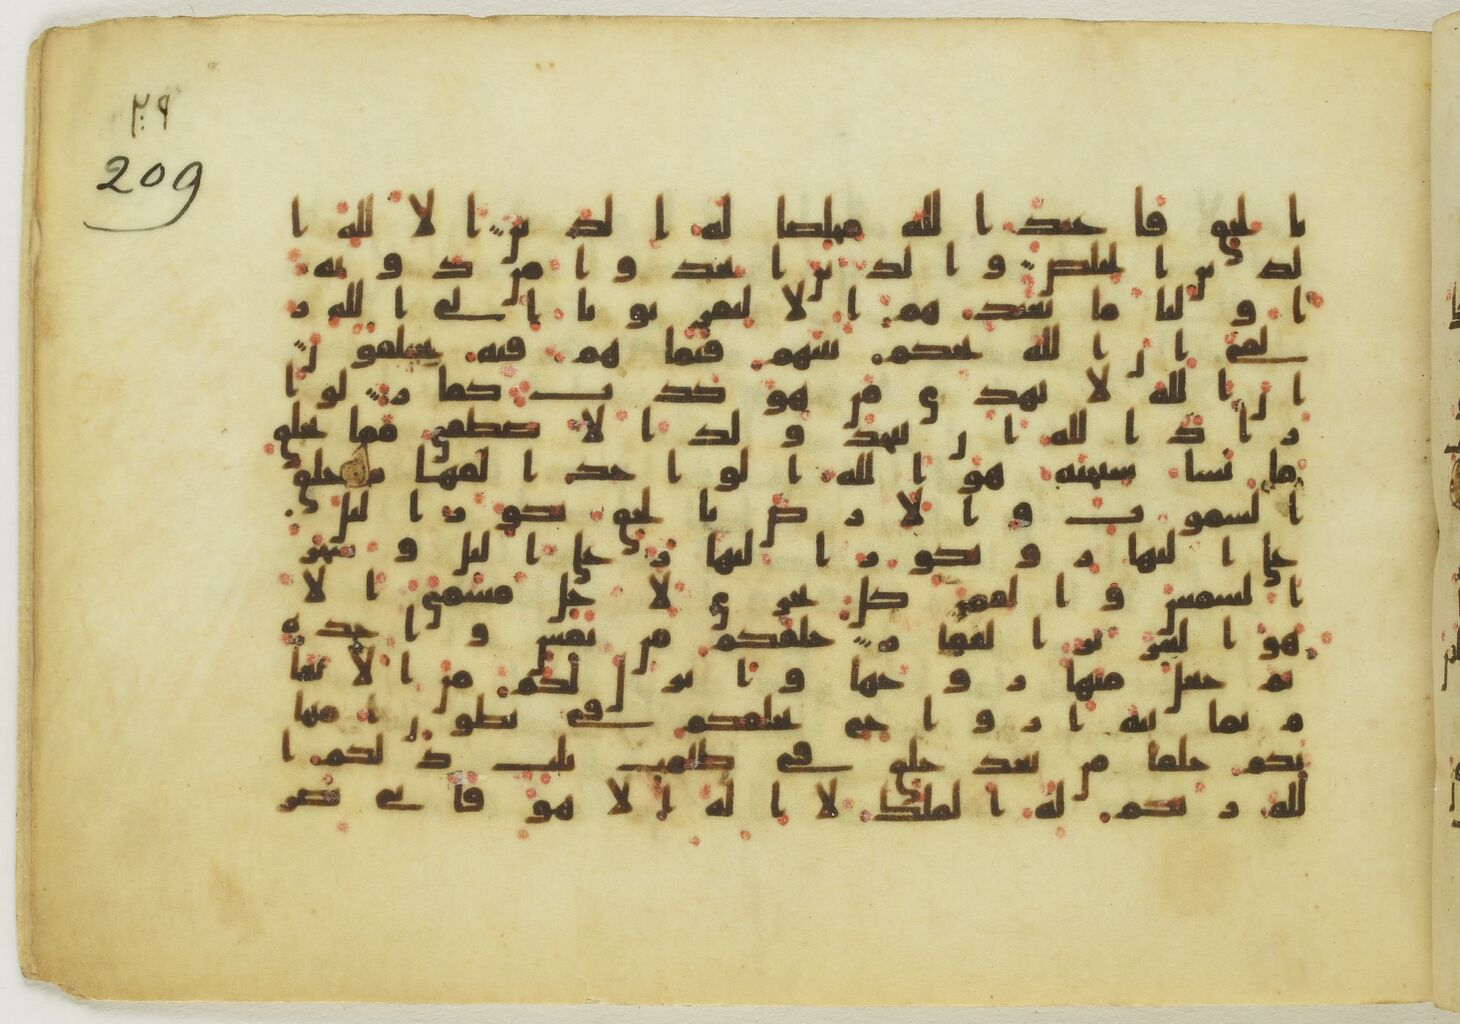 بالحق فاعبد الله مخلصا له الدين الا لله ا
لدين الخلص والذين اتخذوا من دونه
اوليا ما نعبدهم الا ليقربونا الى الله ز
لفى ان الله يحكم بينهم فيما هم فيه يختلفون
ان الله لا يهدي من هو كذب كفار لو ا
راد الله ان يتخذ ولدا لاصطفى مما يخلق
ما يشا سبحنه هو الله الواحد القهار خلق
السموت والارض بالحق يكور اليل
على النهار ويكور النهار على اليل وسخر
الشمس والقمر كل يجري لاجل مسمى الا
هو العزيز الغفار خلقكم من نفس واحدة
ثم جعل منها زوجها وانزل لكم من الانعا
م ثمانية ازواج يخلقكم في بطون امها
تكم خلقا من بعد خلق في ظلمت ثلث ذلكم ا
لله ربكم له الملك لا اله الا هو فانى تصر
٢٠٩
209